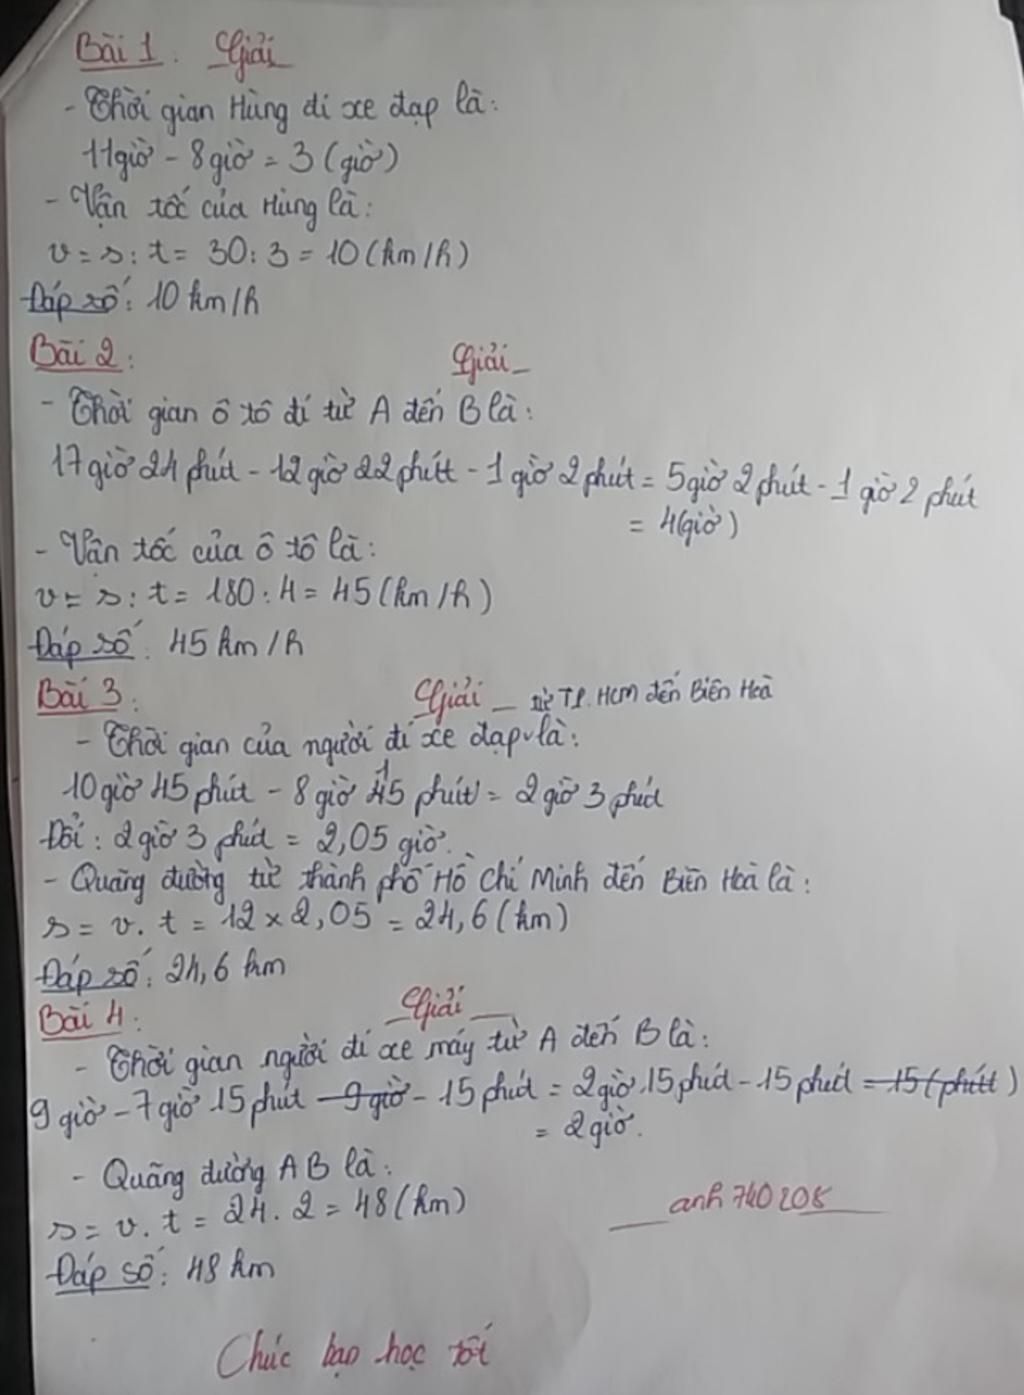 Bài 1: Giải
- Thời gian Hùng đi xe đạp là:
11giờ - 8giờ = 3 (giờ)
- Vận tốc của Hùng là:
v = s : t = 30 : 3 = 10 (km/h)
Đáp số: 10 km/h
Bài 2: Giải
- Thời gian ô tô đi từ A đến B là:
17 giờ 24 phút - 12 giờ 22 phút - 1 giờ 2 phút = 5 giờ 2 phút - 1 giờ 2 phút
= 4 (giờ)
- Vân tốc của ô tô là:
v = s : t = 180 : 4 = 45 (km/h)
Đáp số: 45 km/h
Bài 3: Giải
từ TP. HCM đến Biên Hoà
- Thời gian của người đi xe đạp là:
10 giờ 45 phút - 8 giờ 45 phút = 2 giờ 3 phút
Đổi: 2 giờ 3 phút = 2,05 giờ.
- Quãng đường từ thành phố Hồ Chí Minh đến Biên Hoà là:
s = v . t = 12 x 2,05 = 24,6 (km)
Đáp số: 24,6 km
Bài 4: Giải
- Thời gian người đi xe máy từ A đến B là:
9 giờ - 7 giờ 15 phút - 9 giờ - 15 phút = 2 giờ 15 phút - 15 phút = 15 (phút)
= 2 giờ.
- Quãng đường AB là:
s = v . t = 24 . 2 = 48 (km)
Đáp số: 48 km
anh740208
Chúc bạn học tốt